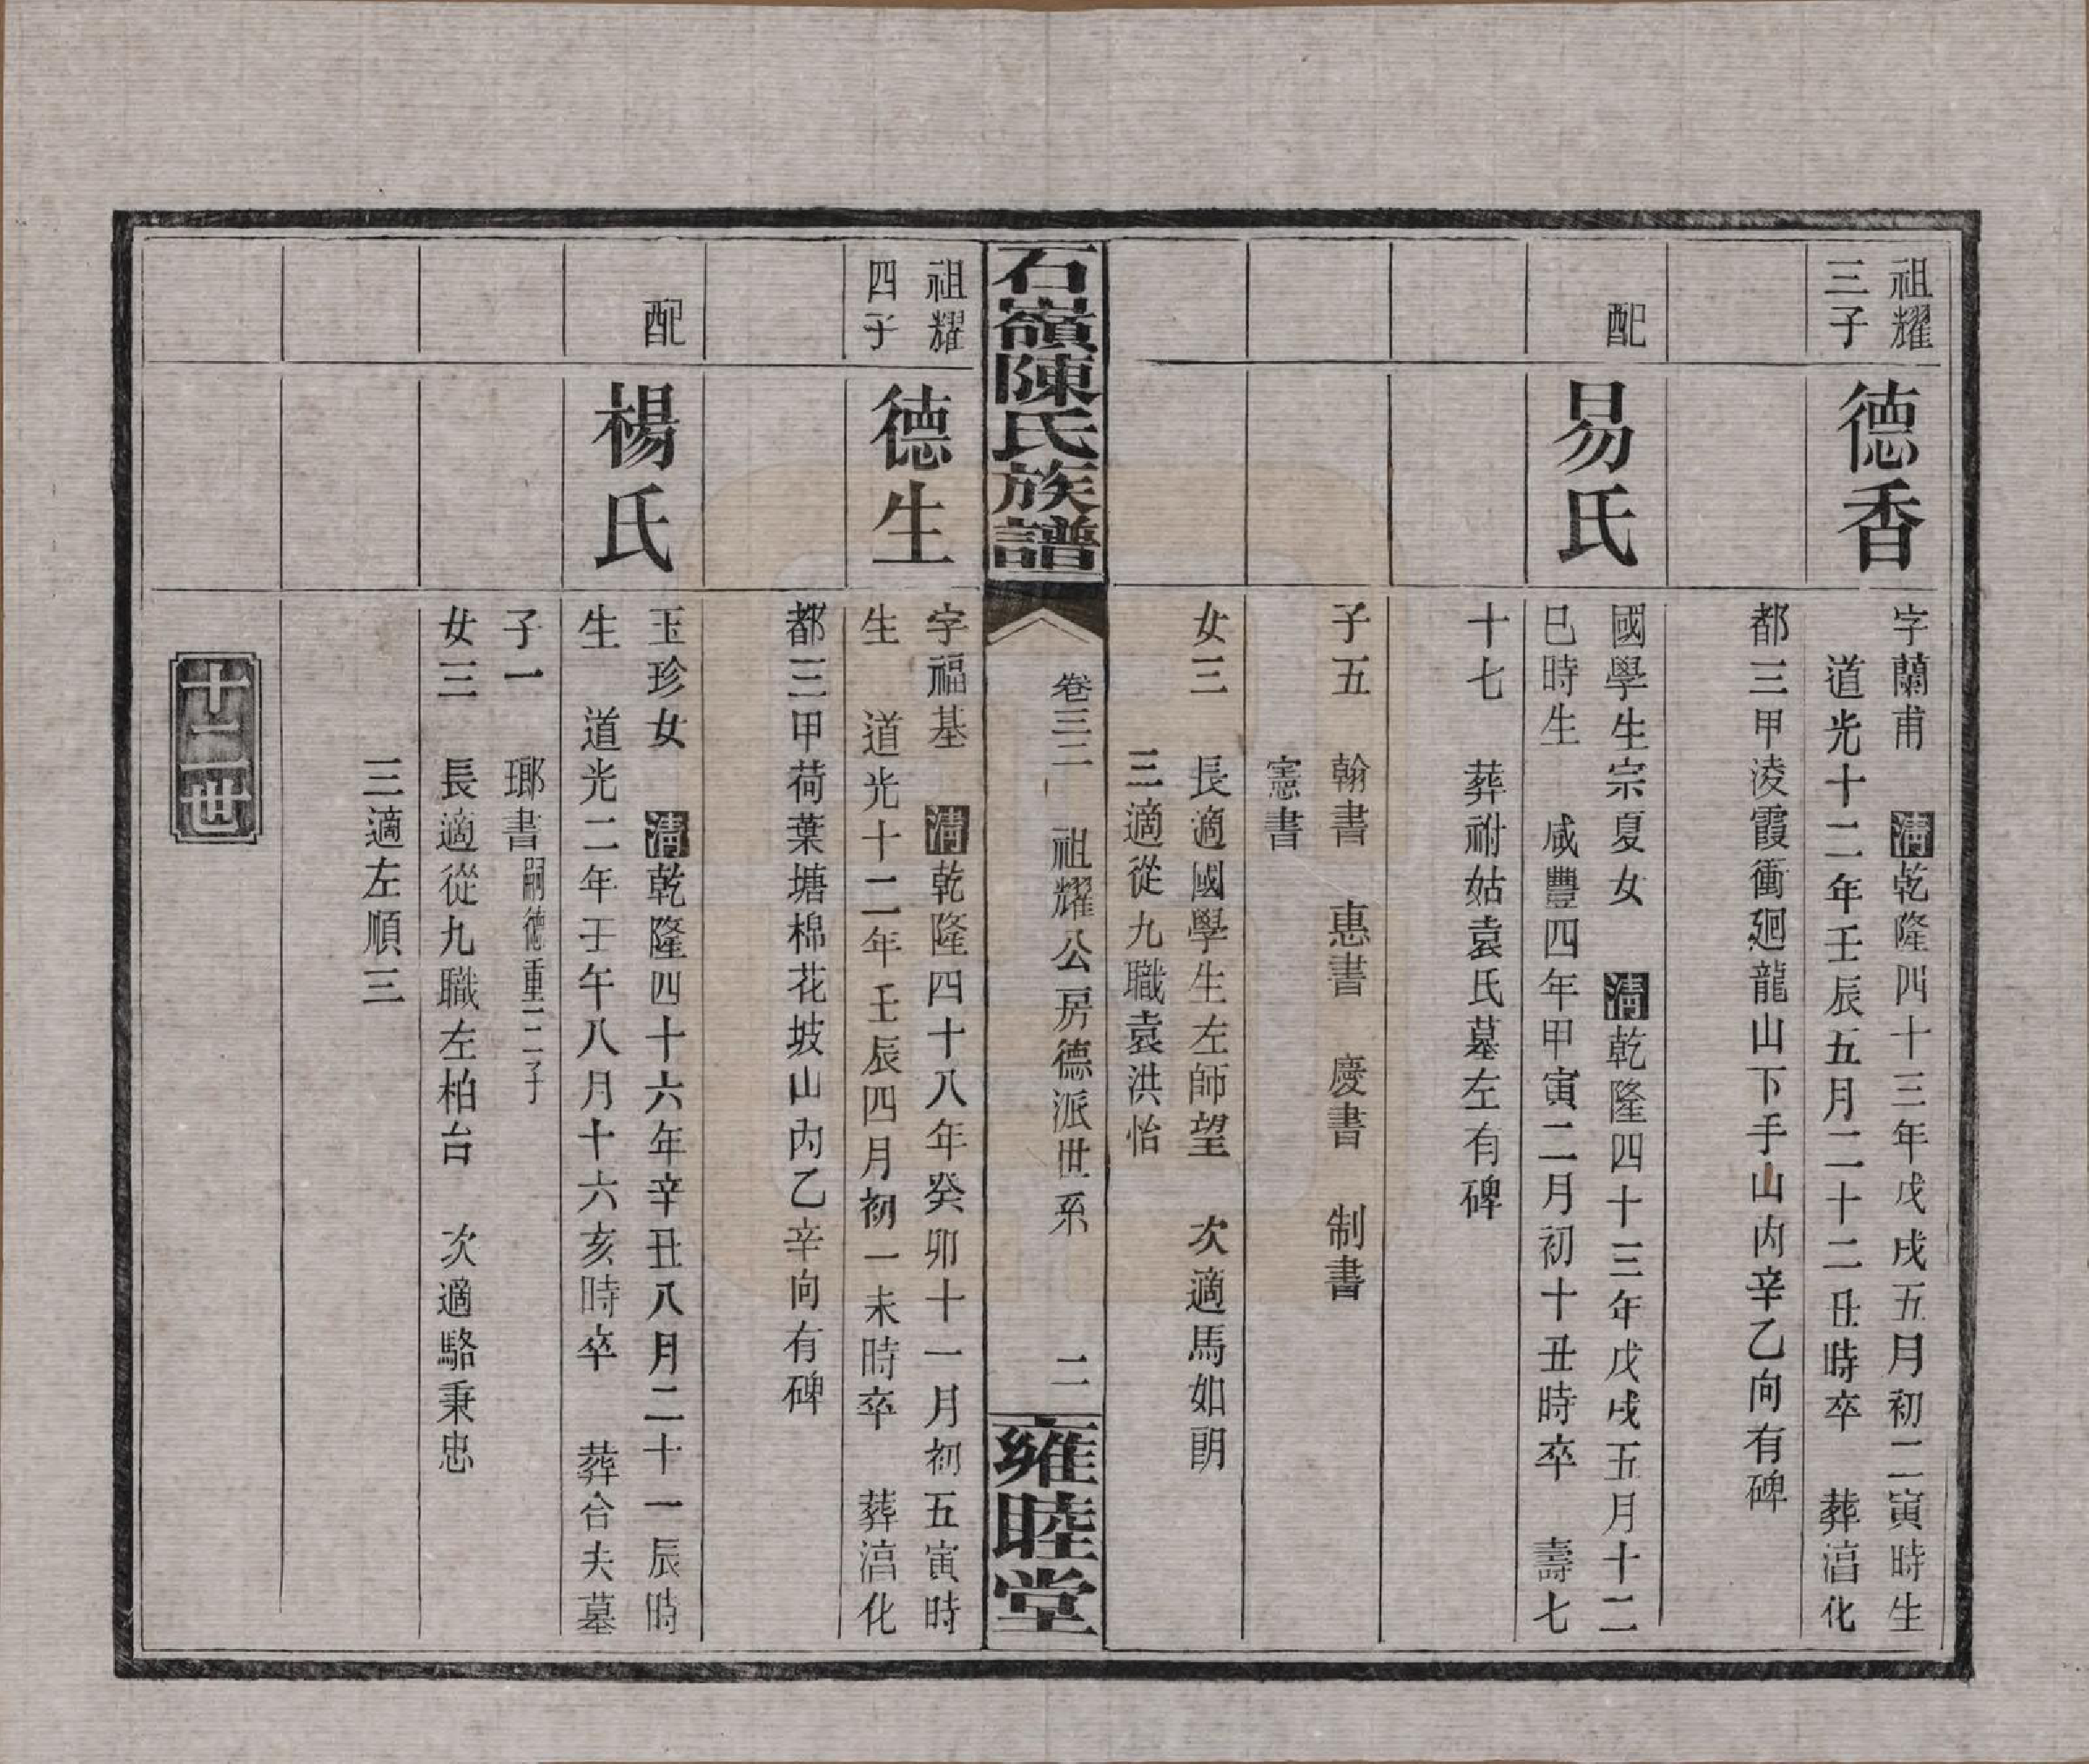 祖耀
三子
德香
字蘭甫　清乾隆四十三年戊戌五月初二寅時生
道光十二年壬辰五月二十二丑時卒　葬淯化
都三甲凌霞衝廻龍山下手山內辛乙向有碑
配
易氏
國學生宗夏女　清乾隆四十三年戊戌五月十二
巳時生　咸豐四年甲寅二月初十丑時卒　壽七
十七　葬祔姑袁氏墓左有碑
子五　翰書　惠書　慶書　制書
憲書
女三　長適國學生左師望　次適馬如朗
三適從九職袁洪怡
石嶺陳氏族譜
卷三二　祖耀公房德派世系　二
雍睦堂
祖耀
四子
德生
字福基　清乾隆四十八年癸卯十一月初五寅時
生　道光十二年壬辰四月初一未時卒　葬淯化
都三甲荷葉塘棉花坡山內乙辛向有碑
配
楊氏
玉珍女　清乾隆四十六年辛丑八月二十一辰時
生　道光二年壬午八月十六亥時卒　葬合夫墓
子一　瑯書嗣德重二子
女三　長適從九職左柏台　次適駱秉忠
三適左順三
十二世